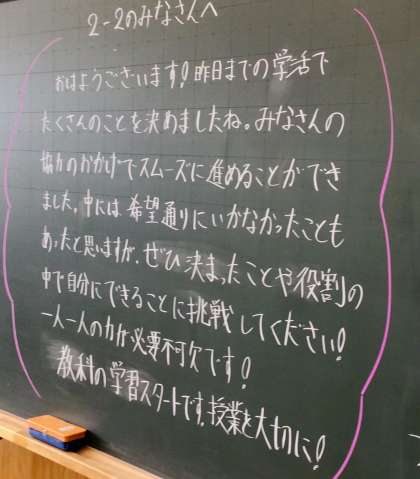 2-2のみなさんへ
おはようございます!昨日までの学活で
たくさんのことを決めましたね。みなさんの
協力のおかげでスムーズに進めることができ
ました。中には希望通りにいかなかったことも
あったと思いますが、ぜひ決まったことや役割の
中で自分にできることに挑戦してください!
一人一人の力が必要不可欠です!
教科の学習スタートです。授業を大切に!